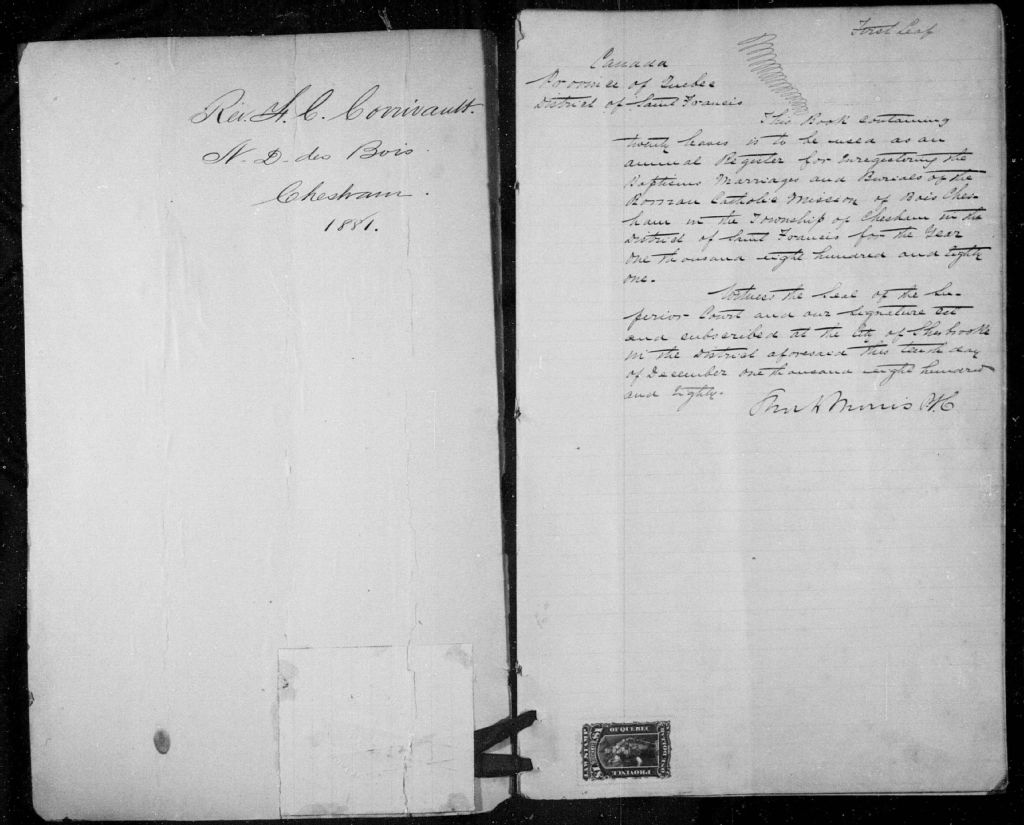 Rev. A. C. Corrivault.
N. D. des Bois.
Chesham.
1881.
First Leaf
Canada
Province of Quebec
District of Saint Francis
This Book containing
twenty leaves is to be used as an
annual Register for Enregistering the
Baptisms Marriages and Burials of the
Roman Catholic Mission of Bois Ches-
ham in the Township of Chesham in the
District of Saint Francis for the Year
One thousand eight hundred and Eighty
one.
Witness the Seal of the Su-
perior Court and our Signature set
and subscribed at the City of Sherbrooke
in the District aforesaid this tenth day
of December one thousand eight hundred
and Eighty.
Morris
LAW STAMP
$1
OF QUEBEC
PROVINCE
ONE DOLLAR
$1